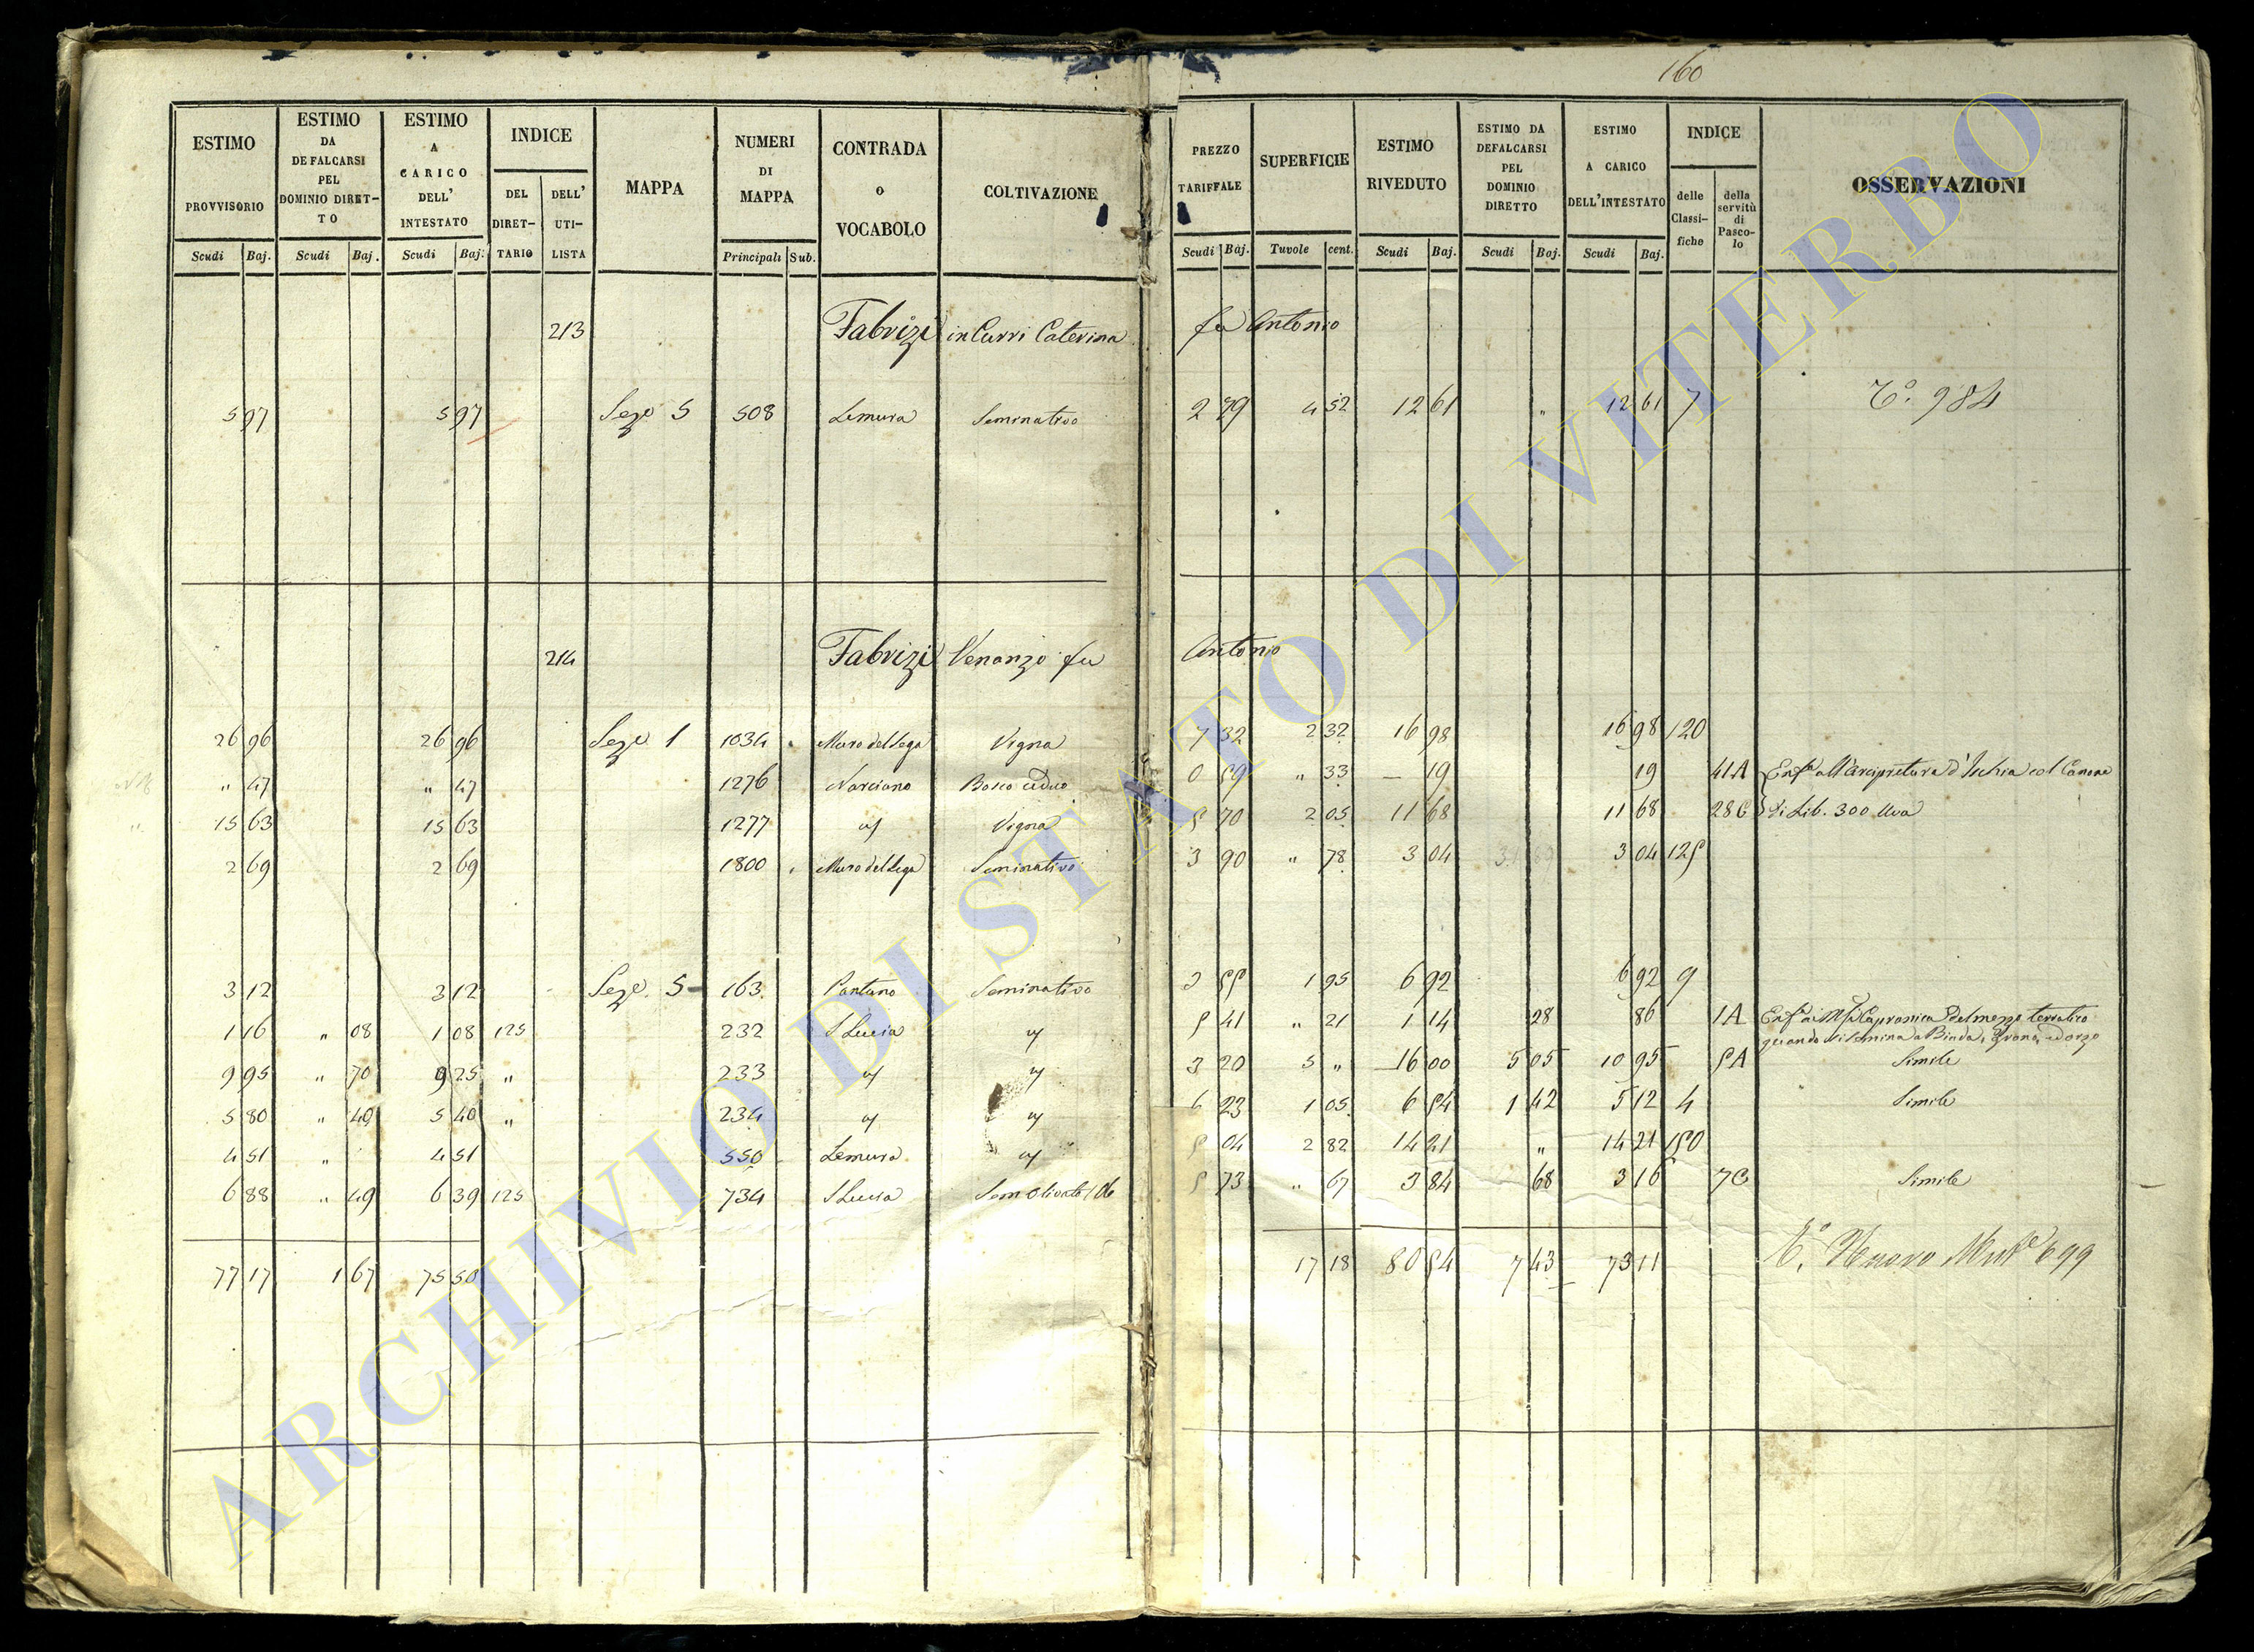 160
ESTIMO PROVVISORIO Scudi Baj. ESTIMO DA DEFALCARSI PEL DOMINIO DIRETTO Scudi Baj. ESTIMO A CARICO DELL' INTESTATO Scudi Baj. INDICE DEL DIRETTARIO DELL' UTILISTA MAPPA NUMERI DI MAPPA Principali Sub. CONTRADA o VOCABOLO COLTIVAZIONE PREZZO TARIFFALE Scudi Baj. SUPERFICIE Tavole cent. ESTIMO RIVEDUTO Scudi Baj. ESTIMO DA DEFALCARSI PEL DOMINIO DIRETTO Scudi Baj. ESTIMO A CARICO DELL'INTESTATO Scudi Baj. INDICE delle Classifiche della servitù di Pascolo OSSERVAZIONI
213 Fabrizi in Curri Caterina fu Antonio
5 97 5 97 Seze 5 508 Lemura Seminativo 2 79 4 52 12 61 " 12 61 7 T.° 984
214 Fabrizi Venanzo fu Antonio
26 96 26 96 Seze 1 1034 Muro del Lega Vigna 7 32 2 32 16 98 16 98 120
" 47 " 47 1276 Narciano Bosco ceduo 0 59 " 33 — 19 19 41A Enfa all'Arcipretura d'Ischia col Canone
15 63 15 63 1277 " Vigna 5 70 2 05 11 68 11 68 28C di Lib. 300 Uva
2 69 2 69 1800 Muro del Lega Seminativo 3 90 " 78 3 04 3 04 125
3 12 3 12 Seze. 5 163 Pantano Seminativo 3 55 1 95 6 92 6 92 9
1 16 " 08 1 08 125 232 S Lucia " 5 41 " 21 1 14 28 86 1A Capranica del mezzo terratico
quando si semina a Biada, Grano, ed orzo
9 95 " 70 9 25 " 233 " " 3 20 5 " 16 00 5 05 10 95 5A Simile
5 80 " 40 5 40 " 234 " " 6 23 1 05 6 54 1 42 5 12 4 Simile
4 51 " 4 51 550 Lemura " 5 04 2 82 14 21 " 14 21 150
6 88 " 49 6 39 125 734 S Lucia Sem Olivato 5 73 " 67 3 84 68 3 16 7C Simile
77 17 1 67 75 50 17 18 80 54 7 43 73 11 T.° Nuovo 699
ARCHIVIO DI STATO DI VITERBO